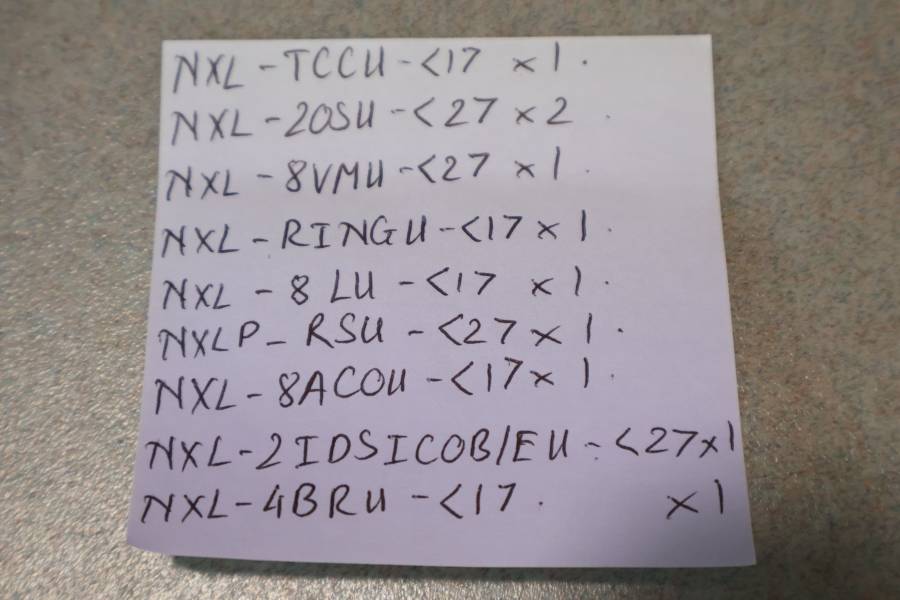 NXL-TCCU-<17 x1.
NXL-2OSU-<27 x2.
NXL-8VMU-<27 x1.
NXL-RINGU-<17x1.
NXL-8LU-<17 x1.
NXLP-RSU-<27x1.
NXL-8ACOU-<17x1.
NXL-2IDSICOB/EU-<27x1
NXL-4BRU-<17. x1